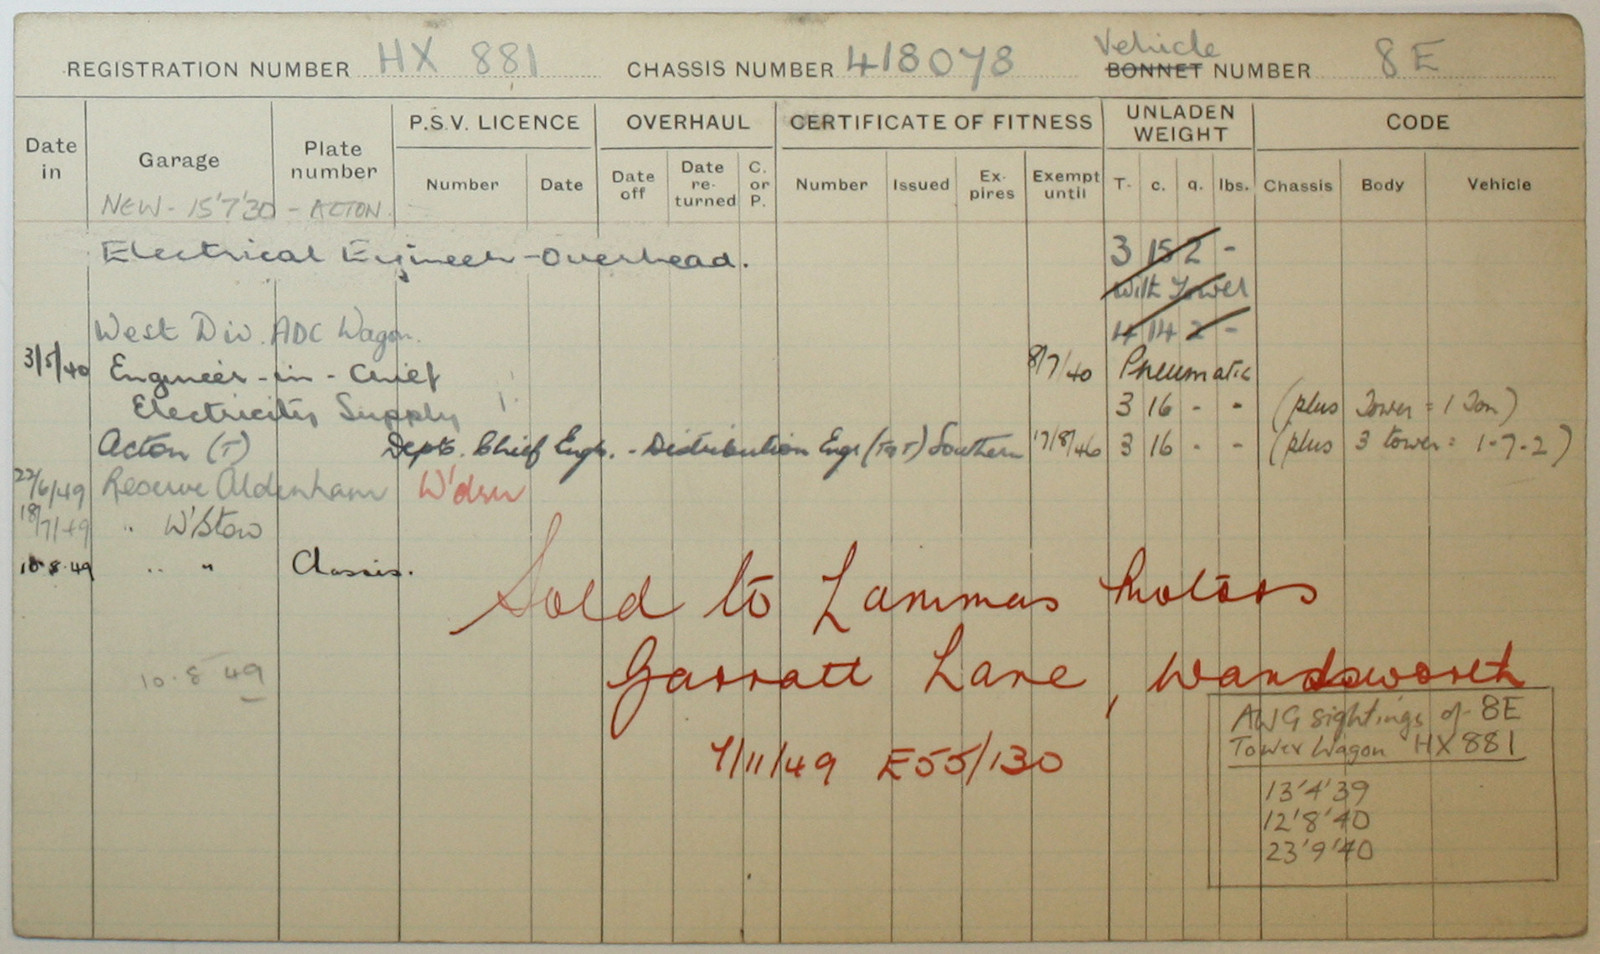 Vehicle
REGISTRATION NUMBER HX 881 CHASSIS NUMBER 418078 BONNET NUMBER 8E
Date in Garage Plate number P.S.V. LICENCE OVERHAUL CERTIFICATE OF FITNESS UNLADEN WEIGHT CODE
Number Date Date off Date re-turned C. or P. Number Issued Ex-pires Exempt until T. c. q. lbs. Chassis Body Vehicle
NEW - 15'7'30 - ACTON.
Electrical Engineer - Overhead. 3 15 2 -
With Tower
West Div. ADC Wagon. 4 14 2 -
3/5/40 Engineer-in-Chief 8/7/40 Pneumatic
Electricity Supply 3 16 - - (plus Tower = 1 Ton)
Acton (T) Dept. Chief Engr. - Distribution Engr (T&T) Southern 17/8/46 3 16 - - (plus 3 tower = 1-7-2)
22/6/49 Reserve Aldenham W'drn
18/7/49 " W'Stow
10.8.49 " " Chassis.
Sold to Lammas Motors
10.8.49
Garratt Lane, Wandsworth
7/11/49 E55/130
AWG sightings of 8E
Tower Wagon HX 881
13'4'39
12'8'40
23'9'40